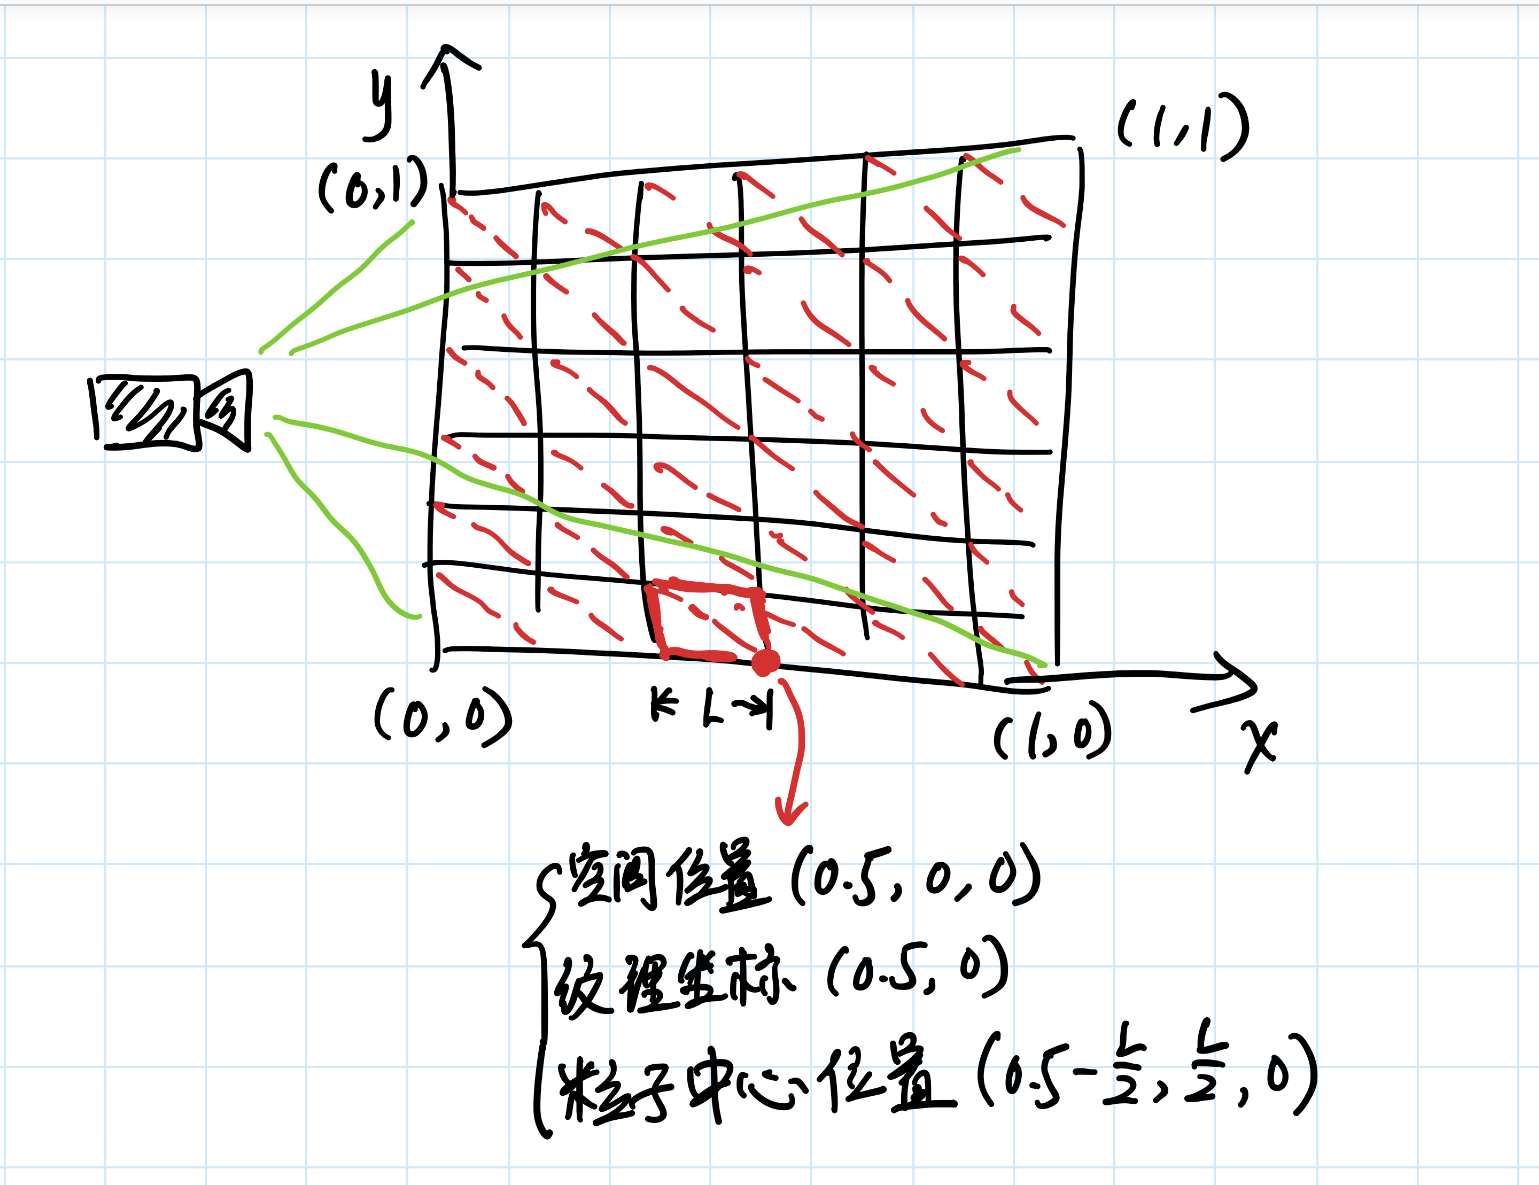 y
(1,1)
(0,1)
(0,0)
L
(1,0)
x
空间位置 (0.5, 0, 0)
纹理坐标 (0.5, 0)
粒子中心位置 (0.5-L/2, L/2, 0)